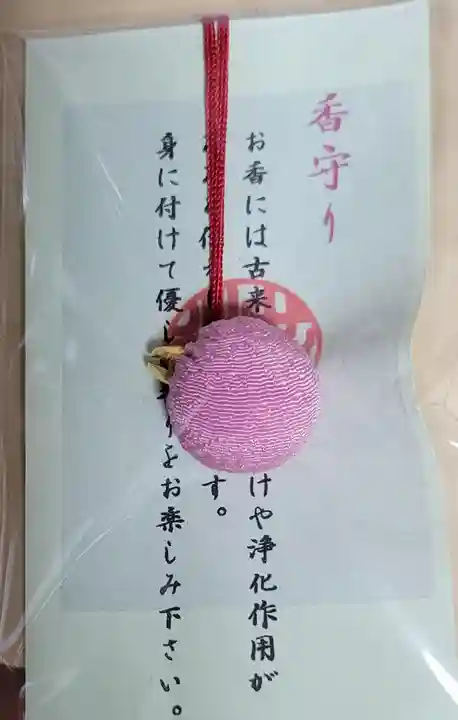 香守り
お香には古来
けや浄化作用が
す。
身に付けて優し
りをお楽しみ下さい。